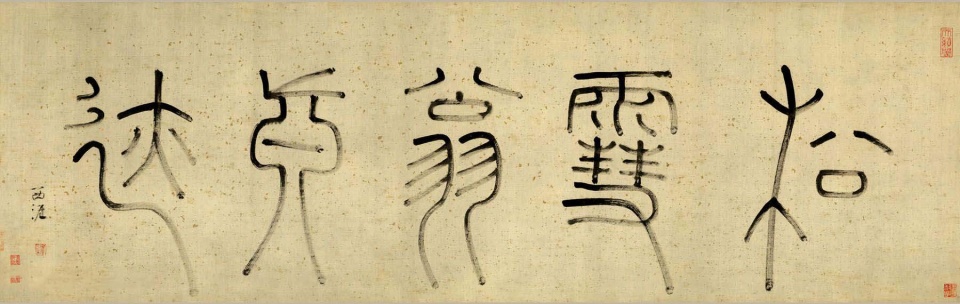 松雪翁真迹
西涯